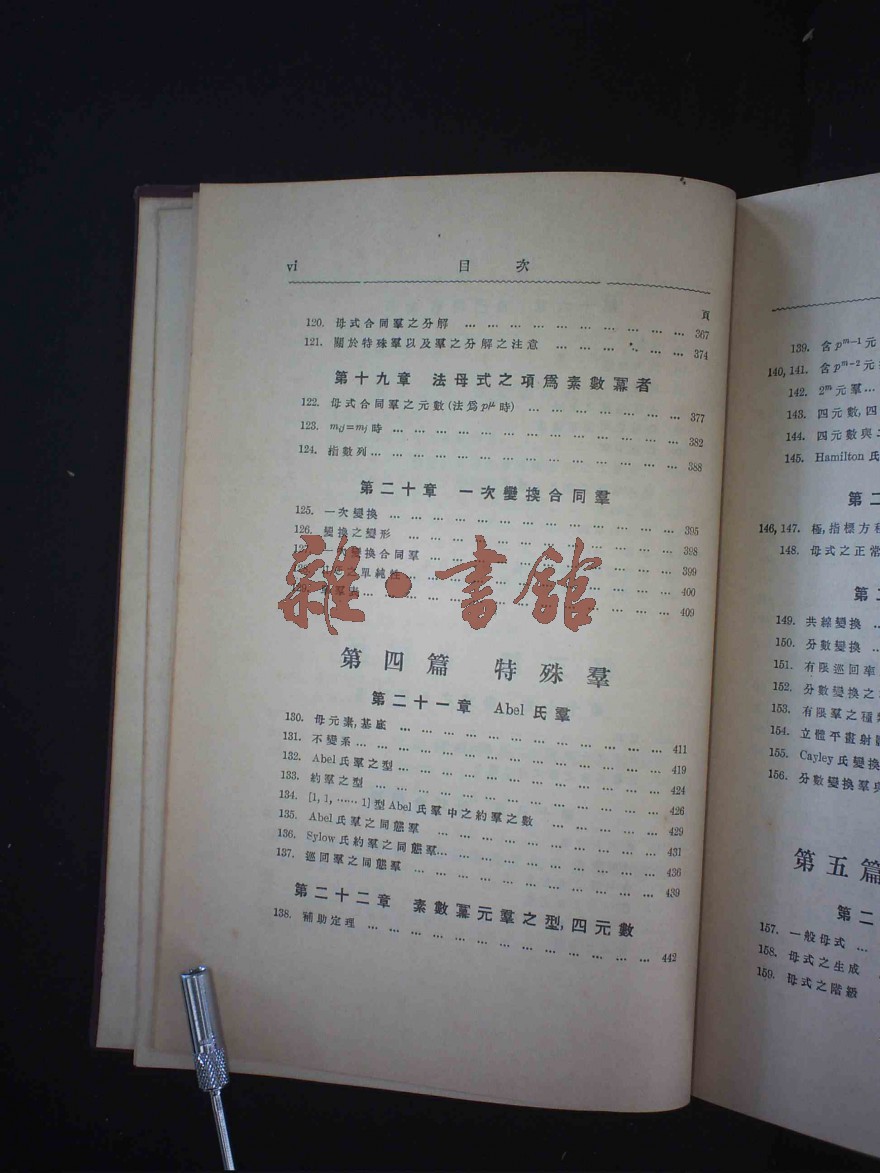 vi 目次
頁
120. 母式合同羣之分解 ... 367
121. 關於特殊羣以及羣之分解之注意 ... 374
第十九章 法母式之項爲素數冪者
122. 母式合同羣之元數(法爲pμ時) ... 377
123. 時 ... 382
124. 指數列 ... 388
第二十章 一次變換合同羣
125. 一次變換 ... 395
126. 變換之變形 ... 398
127. 一次變換合同羣 ... 399
單純性 ... 400
129. ... 409
雜·書館
第四篇 特殊羣
第二十一章 Abel氏羣
130. 母元素,基底 ... 411
131. 不變系 ... 419
132. Abel氏羣之型 ... 424
133. 約羣之型 ... 426
134. [1, 1, ...... 1]型Abel氏羣中之約羣之數 ... 429
135. Abel氏羣之同態羣 ... 431
136. Sylow氏約羣之同態羣 ... 436
137. 巡回羣之同態羣 ... 439
第二十二章 素數冪元羣之型,四元數
138. 補助定理 ... 442
139. 含pm-1元
140, 141. 含pm-2元
142. 2m元羣...
143. 四元數,四
144. 四元數與
145. Hamilton氏
第二
146, 147. 極,指標方程
148. 母式之正常
第二
149. 共線變換 ..
150. 分數變換 ..
151. 有限巡回率
152. 分數變換之
153. 有限羣之種類
154. 立體平畫射影
155. Cayley氏變換
156. 分數變換羣與
第五篇
第二
157. 一般母式 ...
158. 母式之生成
159. 母式之階級